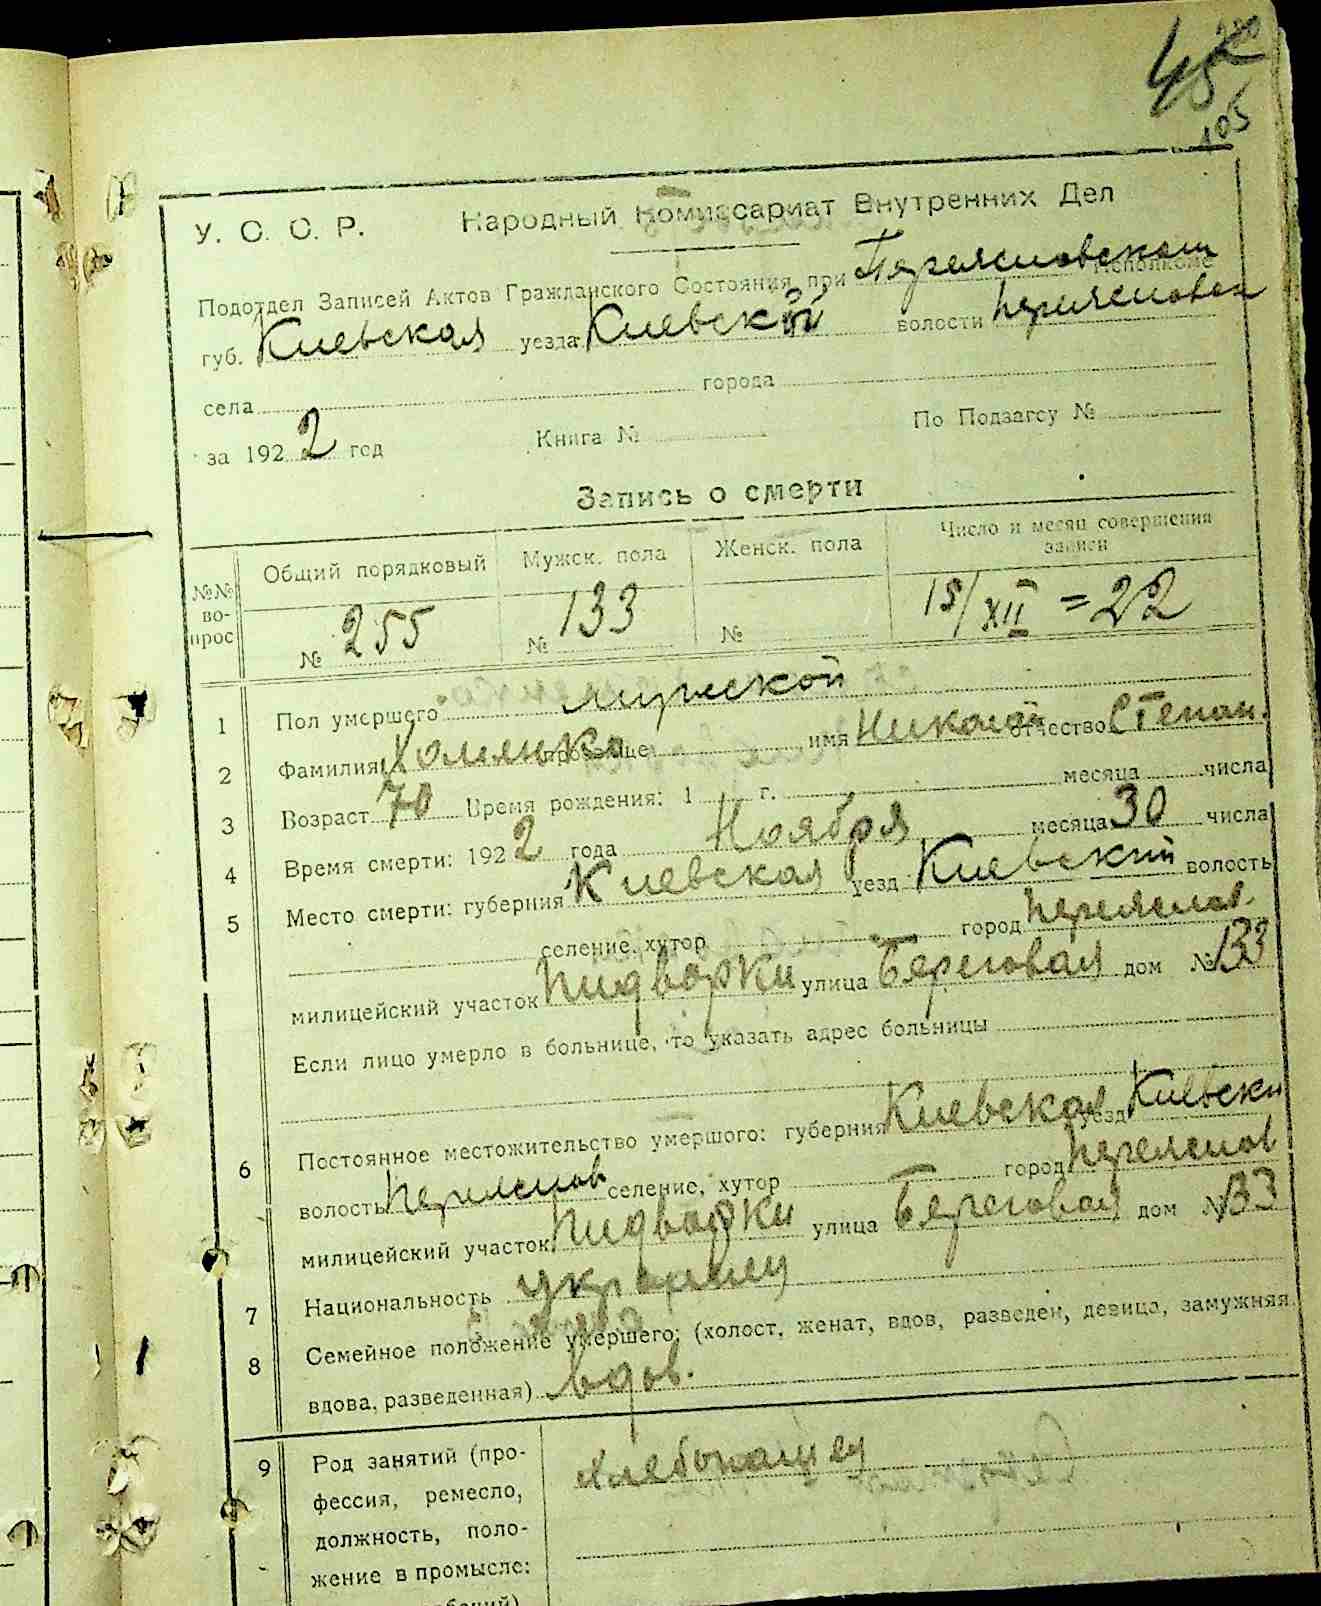 45
105
У. С. С. Р. Народный Комиссариат Внутренних Дел
Подотдел Записей Актов Гражданского Состояния при Переясловском Исполкоме
губ. Киевская уезда Киевской волости Переяслов
села города
за 1922 год Книга № По Подзагсу №
Запись о смерти
№№ вопрос Общий порядковый Мужск. пола Женск. пола Число и месяц совершения записи
№ 255 № 133 № 15/XII = 22
1 Пол умершего мужской
2 Фамилия Хоменко прозвище имя Николай отчество Степан.
3 Возраст 70 Время рождения: 1 г. месяца числа
4 Время смерти: 1922 года Ноября месяца 30 числа
5 Место смерти: губерния Киевская уезд Киевский волость
селение, хутор город Переяслов
милицейский участок Пидворки улица Береговая дом № 133
Если лицо умерло в больнице, то указать адрес больницы
6 Постоянное местожительство умершого: губерния Киевская уезд Киевски
волость Переяслов селение, хутор город Переяслов
милицейский участок Пидворки улица Береговая дом № 133
7 Национальность украинец
8 Семейное положение умершего: (холост, женат, вдов, разведен, девица, замужняя
вдова, разведенная) вдов.
9 Род занятий (про-
фессия, ремесло,
должность, поло-
жение в промысле:
хлебопашец